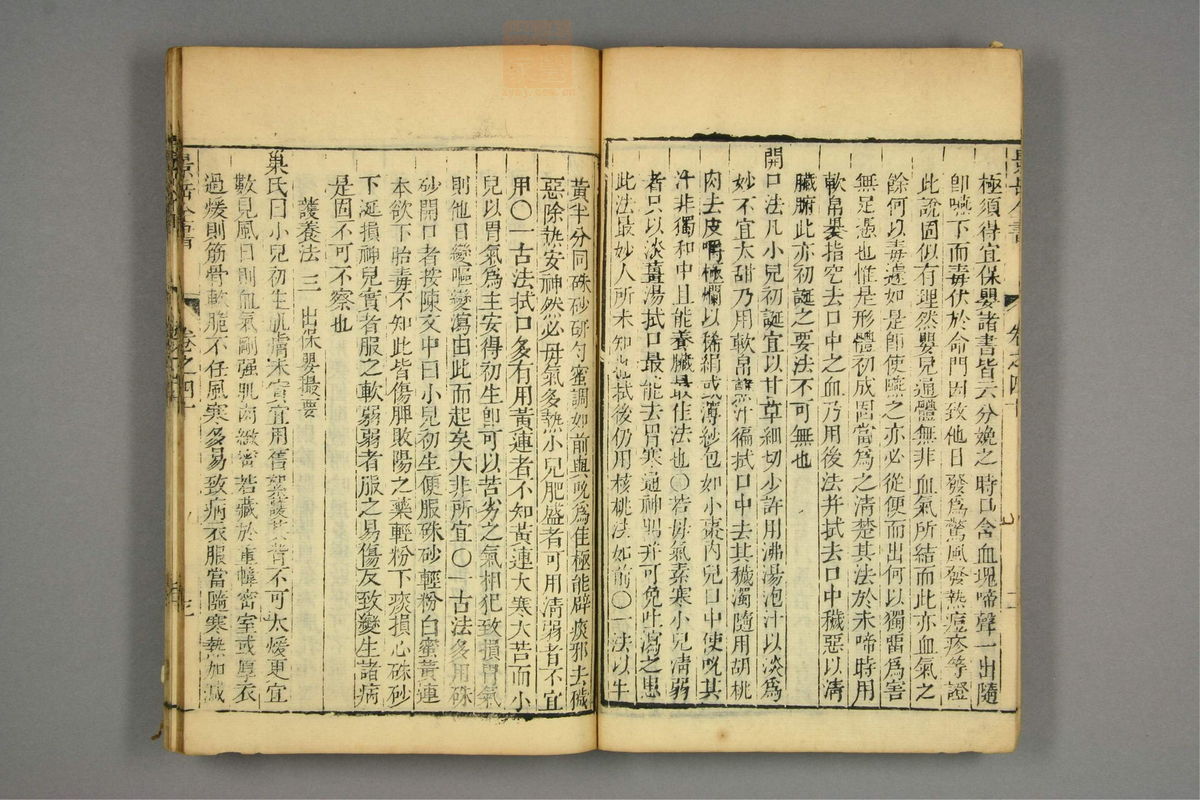 極須得宜保嬰諸書皆云分娩之時口含血塊啼聲一出隨
卽嚥下而毒伏於命門因致他日發爲驚風發熱痘疹等證
此說固似有理然嬰兒通體無非血氣所結而此亦血氣之
餘何以毒遽如是卽使嚥之亦必從便而出何以獨留爲害
無足憑也惟是形體初成固當爲之清楚其法於未啼時用
軟帛裹指挖去口中之血乃用後法并拭去口中穢惡以清
臟腑此亦初誕之要法不可無也
開口法凡小兒初誕宜以甘草細切少許用沸湯泡汁以淡爲
妙不宜太甜乃用軟帛蘸汁徧拭口中去其穢濁隨用胡桃
肉去皮嚼極爛以稀絹或薄紗包如小棗內兒口中使吮其
汁非獨和中且能養臟最佳法也○若母氣素寒小兒清弱
者只以淡薑湯拭口最能去胃寒通神明并可免吐瀉之患
此法最妙人所未知也拭後仍用核桃法如前○一法以牛
黃半分同硃砂研勻蜜調如前與吮爲佳極能辟痰邪去穢
惡除熱安神然必母氣多熱小兒肥盛者可用清弱者不宜
用○一古法拭口多有用黃連者不知黃連大寒大苦而小
兒以胃氣爲主安得初生卽可以苦劣之氣相犯致損胃氣
則他日變嘔變瀉由此而起矣大非所宜○一古法多用硃
砂開口者按陳文中曰小兒初生便服硃砂輕粉白蜜黃連
本欲下胎毒不知此皆傷脾敗陽之藥輕粉下痰損心硃砂
下涎損神兒實者服之軟弱弱者服之易傷反致變生諸病
是固不可不察也
護養法 三 出保嬰撮要
巢氏曰小兒初生肌膚未實宜用舊絮護其背不可太煖更宜
數見風日則血氣剛强肌肉緻密若藏於重幃密室或厚衣
過煖則筋骨軟脆不任風寒多易致病衣服當隨寒熱加減
景岳全書
卷之四十